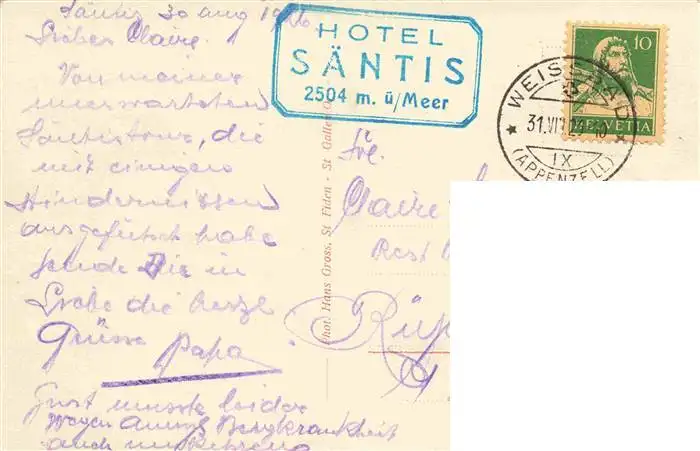 Säntis 30 aug 1926
Lieber Claire.
Von meiner
unerwarteten
Säntistour, die
mit einigen
Hindernissen
ausgeführt habe
sende Die in
Liebe die herzl
Grüsse Papa
Gust musste leider
wegen Bergkrankheit
auch umkehren
HOTEL
SÄNTIS
2504 m. ü/Meer
Phot. Hans Gross, St Fiden - St Gallen
10
HELVETIA
WEISSBAD
31.VIII
IX
(APPENZELL)
Frl.
Claire
Rest